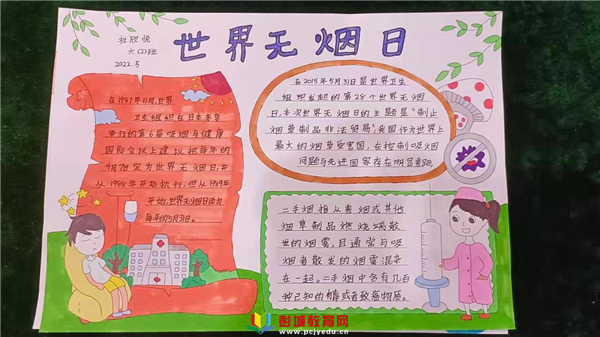 世界无烟日
杜欣悦
六(2)班
2022.5
在1987年11月,世界
卫生组织在日本东京
举行的第6届吸烟与健康
国际会议上建议把每年的
4月7日定为世界无烟日,并
从1988年开始执行,但从1989年
开始,世界无烟日改为
每年的5月31日。
在2015年5月31日是世界卫生
组织发起的第28个世界无烟
日,本次世界无烟日的主题是"制止
烟草制品非法贸易"我国作为世界上
最大的烟草受害国,在控制吸烟
问题与先进国家存在明显差距
二手烟指从卷烟或其他
烟草制品燃烧端散
发的烟雾,且通常与吸
烟者散发的烟雾混杂
在一起。二手烟中含有几百
种已知的有毒或者致癌物质。
彭城教育网
www.pcjyedu.cn